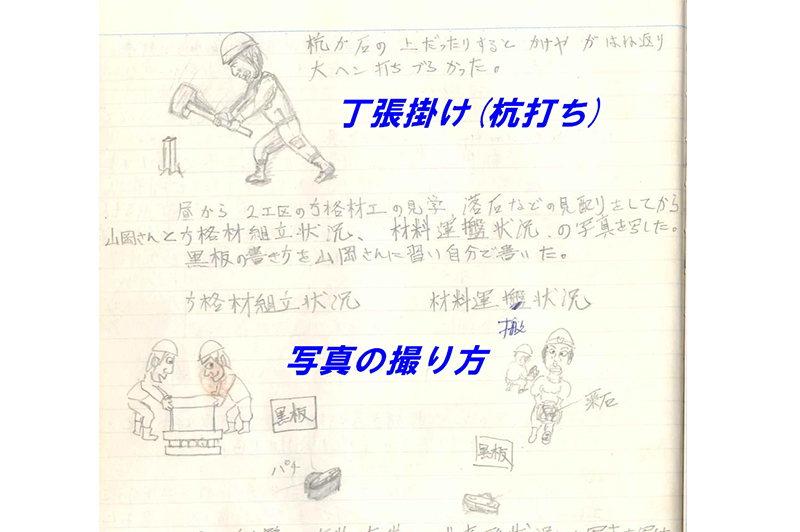 杭が石の上だったりするとかけやがはね返り
大ヘン打ちづらかった。
丁張掛け(杭打ち)
昼から2工区の方格材工の見学、落石などの見配りをしてから
山岡さんと方格材組立状況、材料運盤状況、の写真を写した。
黒板の書き方を山岡さんに習い自分で書いた。
方格材組立状況
材料運盤状況
搬
写真の撮り方
栗石
黒板
黒板
パチ